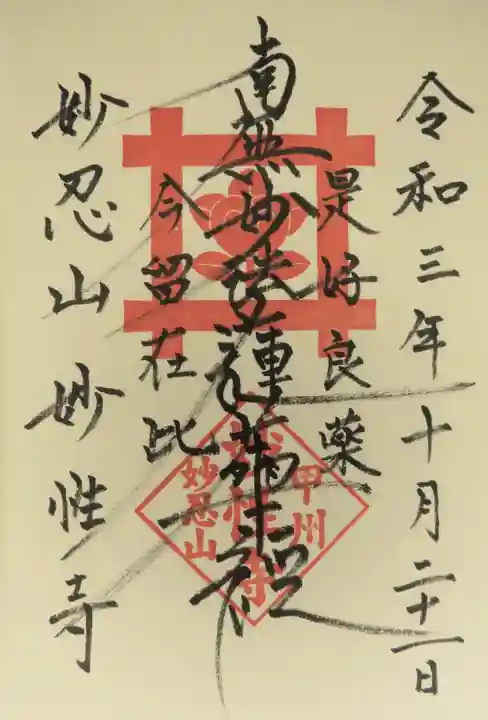 令和三年十月二十一日
是好良薬
南無妙法蓮華経
今留在此
妙忍山 妙性寺
甲州
妙性寺
妙忍山